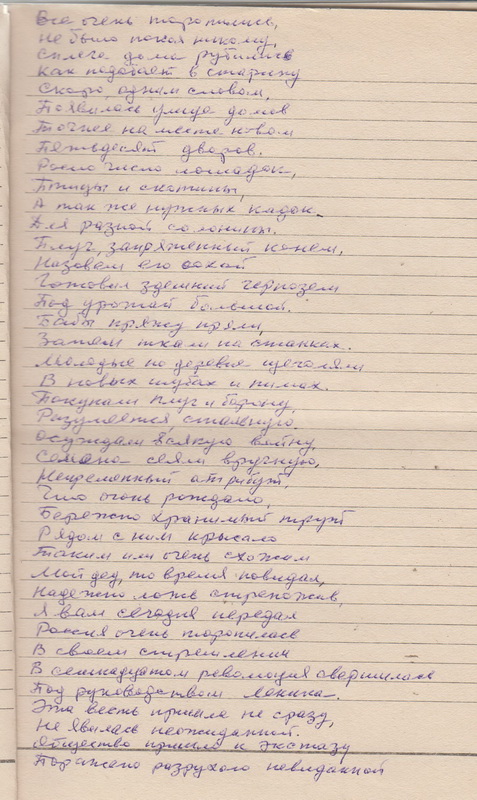 Все очень торопились,
Не было покоя никому,
Спешно дома рубились
Как подобает в старину
Скоро, одним словом,
Появилась улица домов
Точнее на месте новом
Пятьдесят дворов.
Росло число лошадок,
Птицы и скотины,
А так же нужных кадок
Для разной солонины.
Плуг, запряженный конем,
Назовем его сохой
Готовил здешний чернозем
Под урожай большой.
Бабы пряжу пряли,
Затем ткали на станках.
Молодые по деревне щеголяли
В новых шубах и пимах.
Покупали плуг и борону,
Разумеется, стальную.
Осуждали всякую войну,
Семена сеяли вручную,
Непременный атрибут,
Что очень рождало,
Бережно хранимый труд
Рядом с ним крысало
Таким или очень схожим
Мой дед, то время повидал,
Надежно
Я вам сегодня передал
Россия очень торопилась
В своем стремлении
В семнадцатом революция свершилась
Под руководством Ленина.
Эта весть пришла не сразу,
Не явилась неожиданной.
Общество пришло к экстазу
Поражено разрухою невиданной